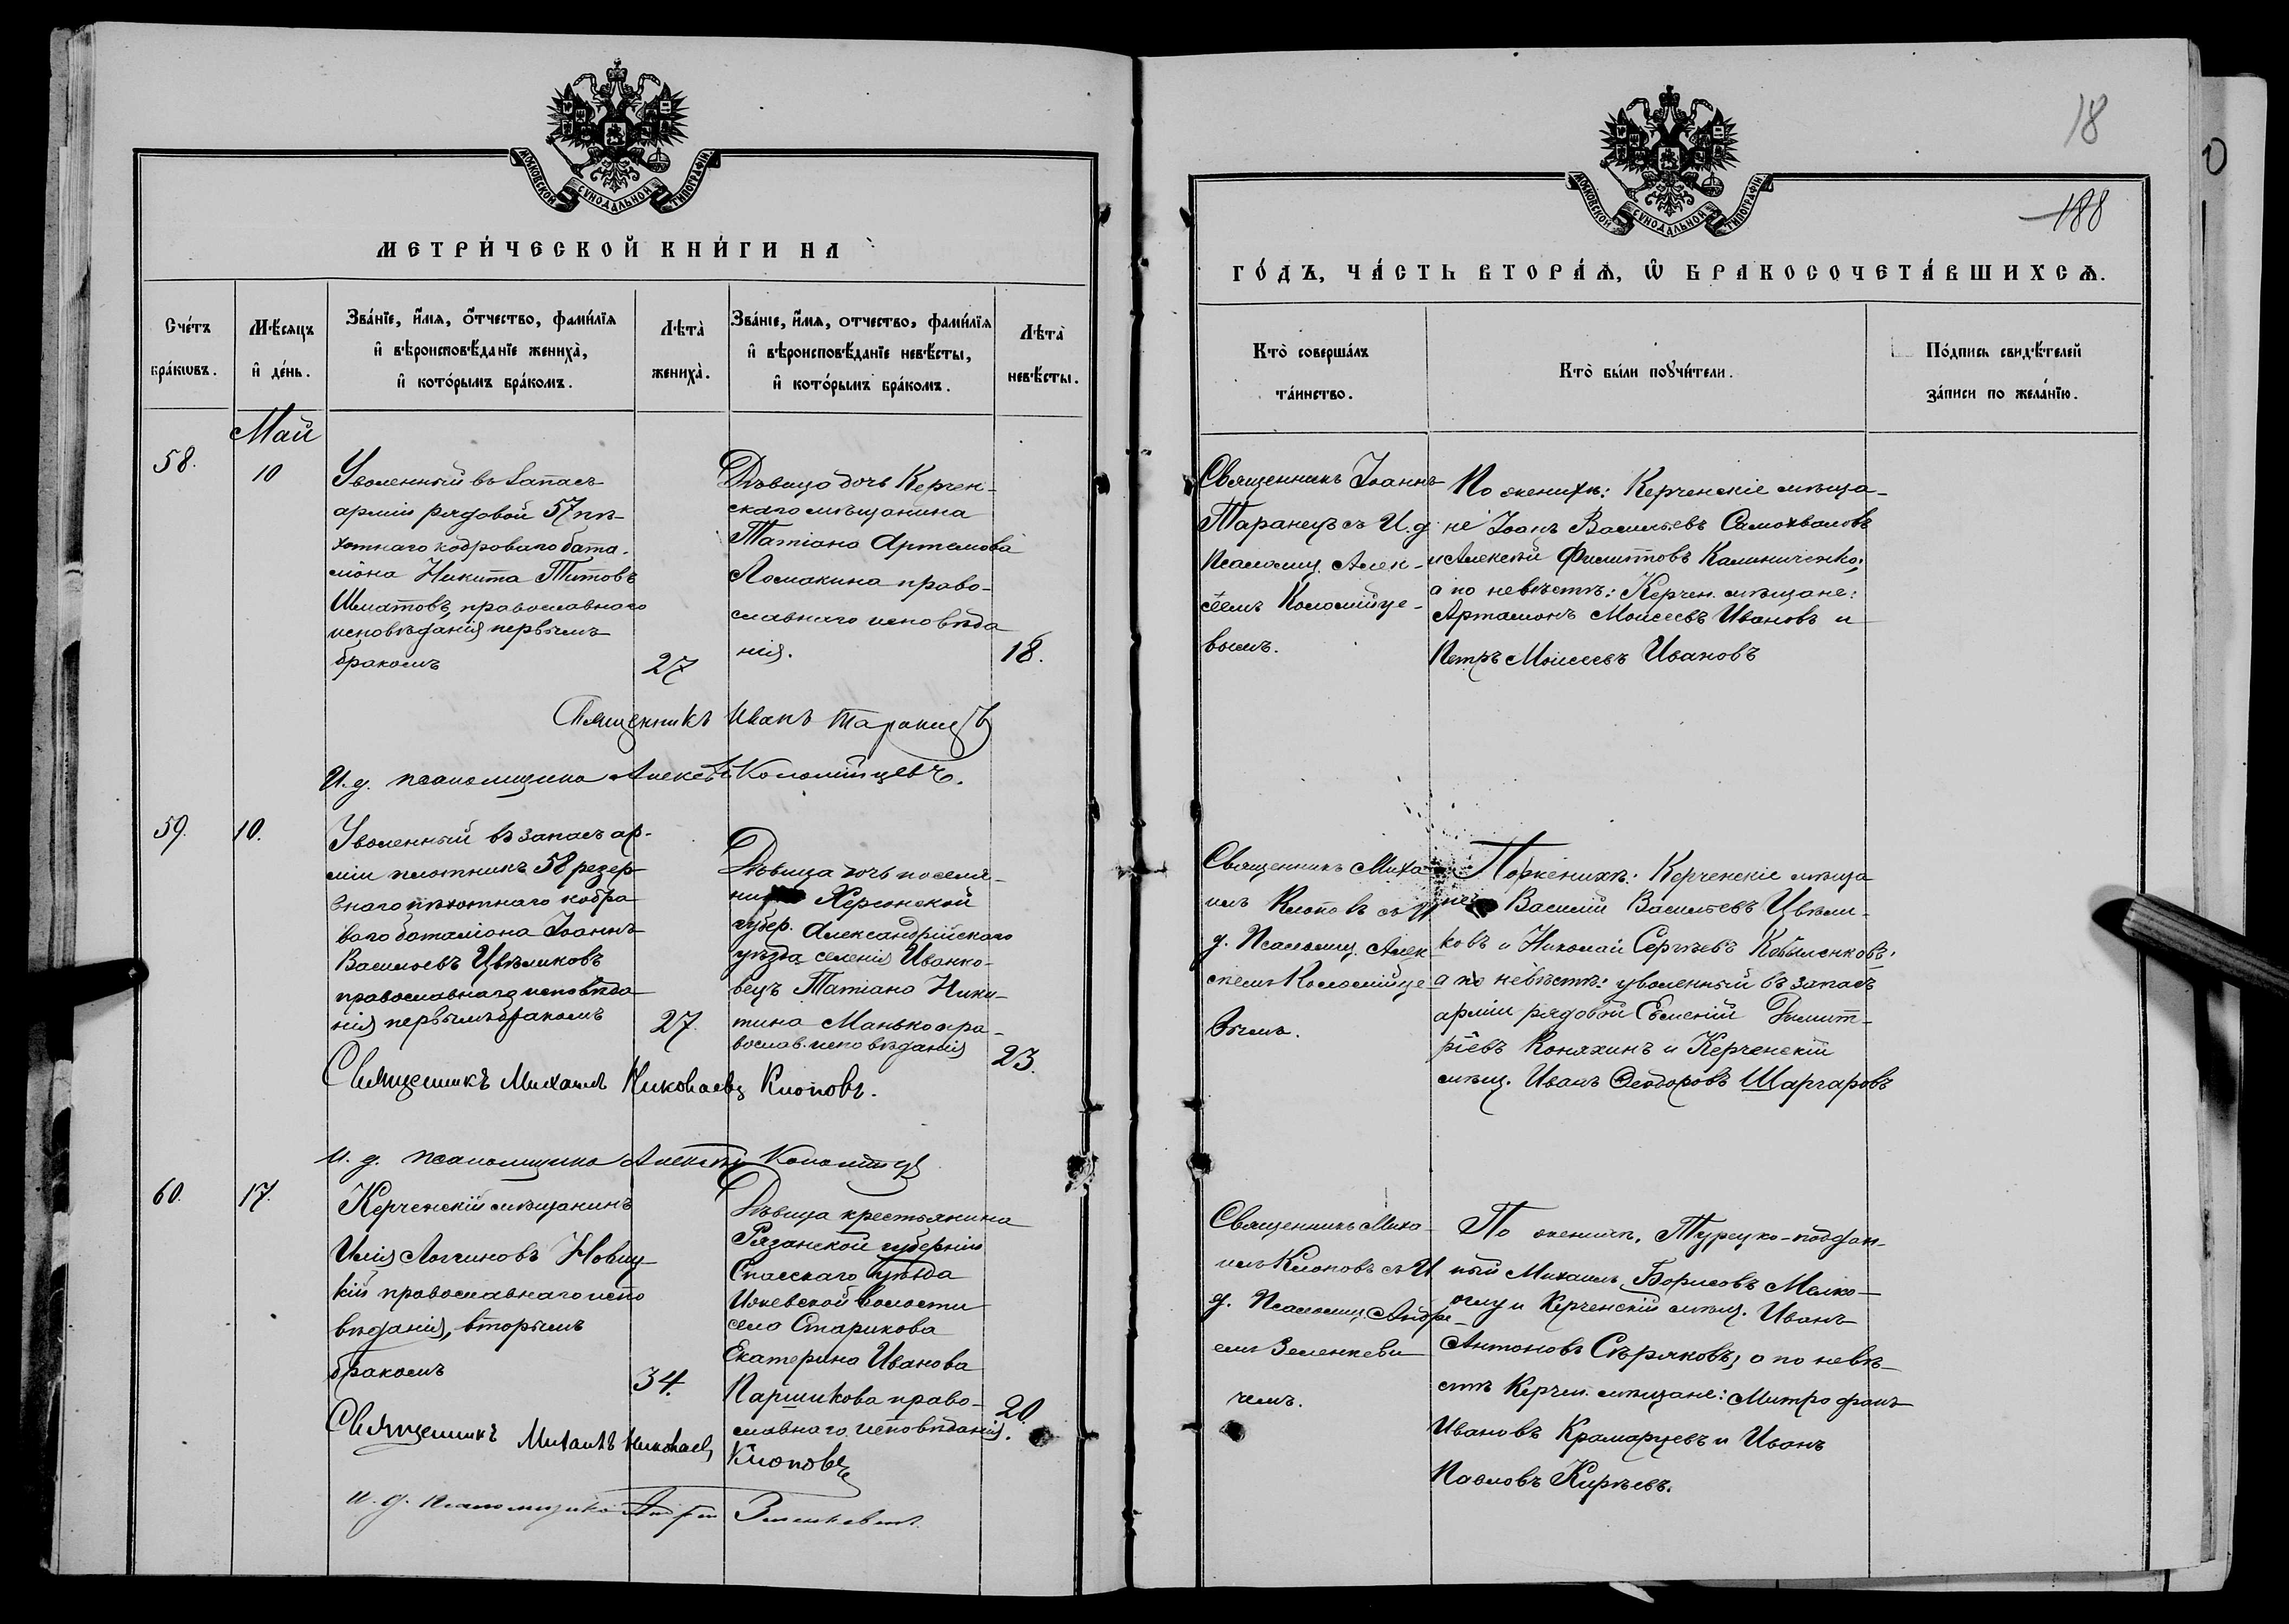 МОСКОВСКОЙ СѴНОДАЛЬНОЙ ТИПОГРАФІИ
МЕТРИ́ЧЕСКОЙ КНИ́ГИ НА
Сче́тъ бра́кѡвъ.
Мѣ́сяцъ и҆ де́нь.
Зва́нїе, и҆́мя, ѻ҆́тчество, фами́лїя
и҆ вѣроисповѣ́данїе жениха̀,
и҆ кото́рымъ бра́комъ.
Лѣта̀ жениха̀.
Зва́нїе, и҆́мя, ѻтчество, фами́лїя
и҆ вѣроисповѣ́данїе невѣ́сты,
и҆ кото́рымъ бра́комъ.
Лѣта̀ невѣ́сты.
Май
58.
10
Уволенный въ запасъ
арміи рядовой 57 пѣ-
хотнаго кадроваго бата-
ліона Никита Титовъ
Шматовъ, православнаго
исповѣданія первымъ
бракомъ
27
Дѣвица дочь Керчен-
скаго мѣщанина
Татіана Артемова
Ломакина право-
славнаго исповѣда
нія.
18.
Священникъ Иванъ Таранецъ
И.д. псаломщика Алексѣй Коломійцевъ.
59.
10.
Уволенный въ запасъ ар-
міи плотникъ 58 резер-
внаго пѣхотнаго кадро
ваго баталіона Іоаннъ
Васильевъ Цвѣликовъ
православнаго исповѣда
нія первымъ бракомъ
27.
Дѣвица дочь поселя-
ни Херсонской
губер. Александрійскаго
уѣзда селенія Иванко-
вецъ Татіана Ники-
тина Манько пра-
вослав. исповѣданія
23.
Священникъ Михаилъ Николаевъ Клоповъ.
И. д. псаломщика Алексѣй Коломійц
60.
17.
Керченскій мѣщанинъ
Илія Логиновъ Новиц-
кій православнаго испо
вѣданія, вторымъ
бракомъ
34.
Дѣвица крестьянина
Рязанской губерніи
Спасскаго уѣзда
Ижевской волости
села Старикова
Екатерина Иванова
Паршикова право-
славнаго исповѣданія.
20.
Священникъ Михаилъ Николаевъ
Клоповъ
И. д. псаломщика Андрей Зеленкевичъ
18
188
МОСКОВСКОЙ СѴНОДАЛЬНОЙ ТИПОГРАФІИ
ГО́ДЪ, ЧА́СТЬ ВТОРА́Ѧ, Ѡ҆ БРАКОСОЧЕТА́ВШИХСѦ.
Кто̀ соверша́лъ
та́инство.
Кто̀ бы́ли поꙋчи́тели.
По́дпись свидѣ́телей
за́писи по жела́нїю.
Священникъ Іоаннъ
Таранецъ съ И.д.
Псаломщ. Алек-
сѣемъ Коломійце-
вымъ.
По женихѣ: Керченскіе мѣща-
не Іоанъ Васильевъ Самохваловъ
и Алексѣй Филиповъ Калиниченко;
а по невѣстѣ: Керчен. мѣщане:
Артамонъ Моисеевъ Ивановъ и
Петръ Моисеевъ Ивановъ
Священникъ Миха-
илъ Клоповъ съ И
д. Псаломщ. Алек
сѣемъ Коломійце-
вымъ.
По женихѣ: Керченскіе мѣща
не Василій Васильевъ Цвѣли-
ковъ и Николай Сергѣевъ Кобыленковъ;
а по невѣстѣ: уволенный въ запасъ
арміи рядовой Евменій Димит-
ріевъ Коняхинъ и Керченскій
мѣщ. Иванъ Ѳеодоровъ Шаргаровъ
Священникъ Миха-
илъ Клоповъ съ И
д. Псаломщ. Андре-
емъ Зеленкеви
чемъ.
По женихѣ, Турецко-поддан-
ный Михаилъ Борисовъ Мелко-
оглу и Керченскій мѣщ. Иванъ
Антоновъ Сѣряковъ, а по невѣ-
стѣ Керчен. мѣщане: Митрофанъ
Ивановъ Крамарцевъ и Иванъ
Павловъ Кирѣевъ.